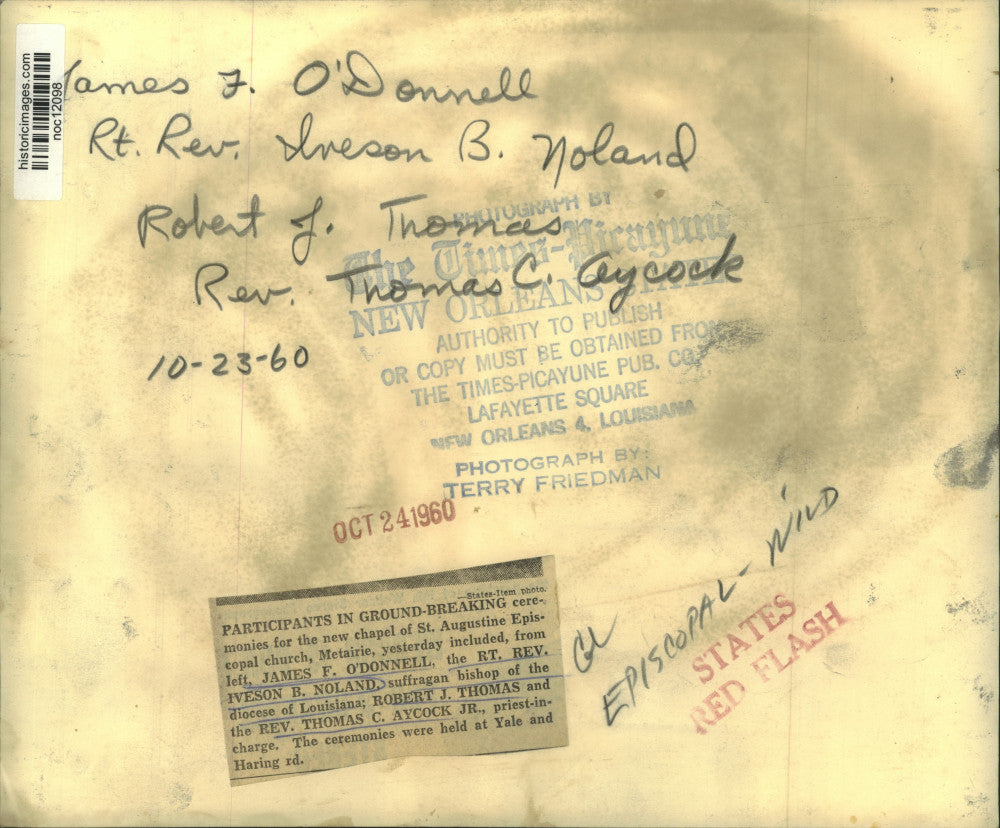 historicimages.com
noc12098
James F. O'Donnell
Rt. Rev. Iveson B. Noland
Robert J. Thomas
Rev. Thomas C. Aycock
10-23-60
PHOTOGRAPH BY
The Times-Picayune
NEW ORLEANS STATES
AUTHORITY TO PUBLISH
OR COPY MUST BE OBTAINED FROM
THE TIMES-PICAYUNE PUB. CO.
LAFAYETTE SQUARE
NEW ORLEANS 4, LOUISIANA
PHOTOGRAPH BY:
TERRY FRIEDMAN
OCT 24 1960
—States-Item photo.
PARTICIPANTS IN GROUND-BREAKING cere-
monies for the new chapel of St. Augustine Epis-
copal church, Metairie, yesterday included, from
left, JAMES F. O'DONNELL, the RT. REV.
IVESON B. NOLAND, suffragan bishop of the
diocese of Louisiana; ROBERT J. THOMAS and
the REV. THOMAS C. AYCOCK JR., priest-in-
charge. The ceremonies were held at Yale and
Haring rd.
EPISCOPAL-
STATES
RED FLASH